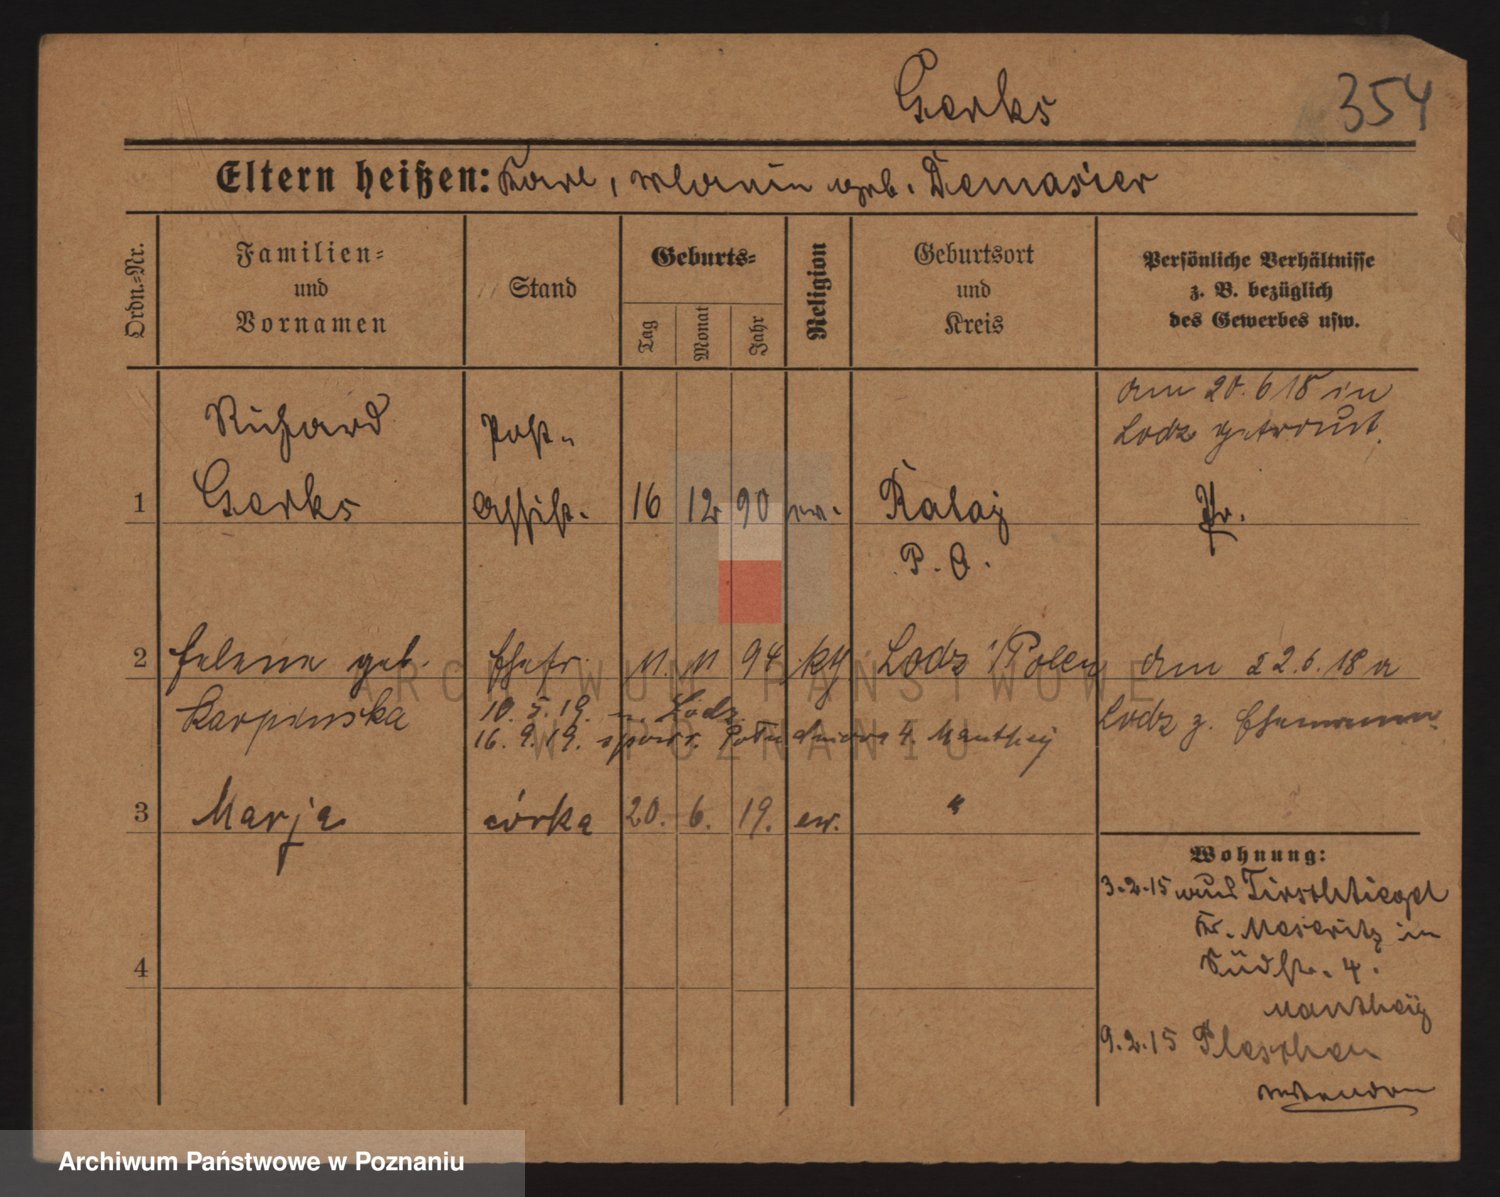 Gerks
354
Eltern heißen: Karl, Marie geb. Demasier
Ordn.=Nr.
Familien=
und
Vornamen
Stand
Geburts=
Tag
Monat
Jahr
Religion
Geburtsort
und
Kreis
Persönliche Verhältnisse
z. B. bezüglich
des Gewerbes usw.
am 20.6 18 in
Lodz getraut.
Richard
Post-
1 Gerks Assist. 16 12 90 ev. Rataj Pr.
P. O.
2 Helene geb. Ehefr. 11. 11 94 kth Lodz /Polen am 22.6.18 a
Karpinska 10. 5. 19. n. Lodz Lodz z. Ehemann
16. 9. 19. 4. Manthey
3 Marja córka 20. 6. 19. ew. "
4
Wohnung:
3.2.15 Tirschtiegel
Kr. Meseritz in
Südstr. 4.
Manthey
9.2.15 Pleschen
ARCHIWUM PAŃSTWOWE
W POZNANIU
Archiwum Państwowe w Poznaniu